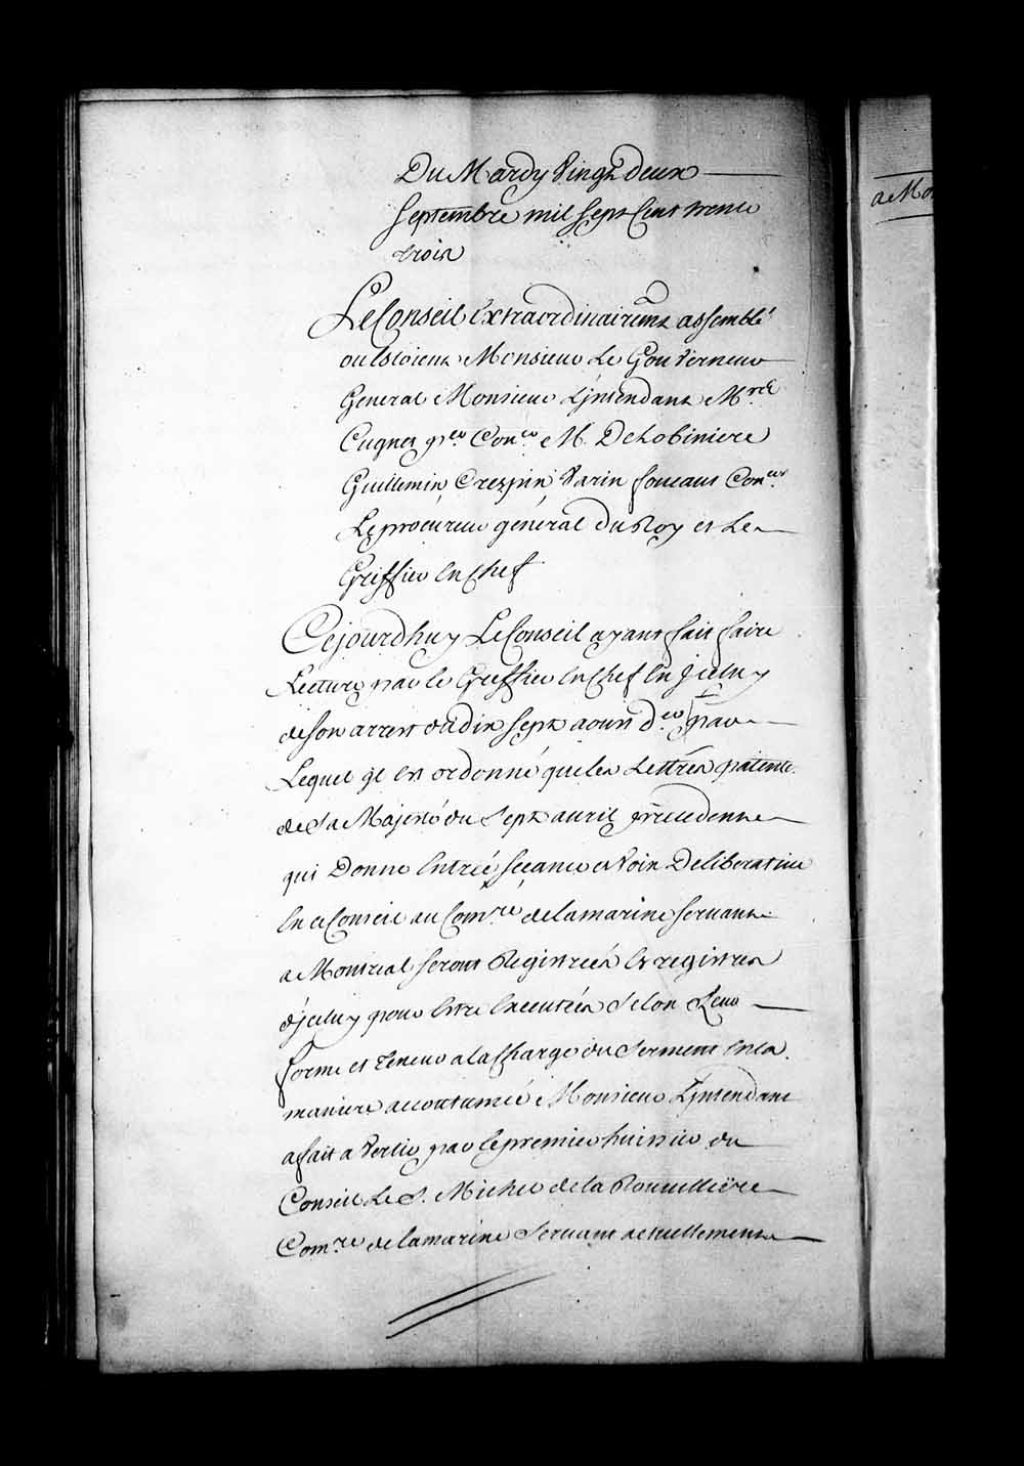 Du Mardy Vingt deux
Septembre mil sept Cent trente
trois
Le Conseil Extraordinairem.t assemblé
ou Estoient Monsieur Le Gouverneur
General Monsieur L'jntendant M.rs
Cugnet p.er Con.er M. De Lobiniere
Guillemin, Crespin, Varin foucaut Con.ers
Le procureur général du Roy et Le
Greffier En Chef
Cejourdhuy Le Conseil ayant fait faire
Lecture par le Greffier En Chef En jceluy
de son arrest du dix sept aoust d.er par
Lequel jl est ordonné que les Lettres patente
de Sa Majesté du Sept avril precedent
qui Donne Entrée séeance et Voix Deliberative
En ce Conseil au Com.re de la marine servant
a Montreal seront Registrées Es registres
d'jceluy pour Estre Executées Selon Leur
forme et teneur a la Charge du Serment En la
maniere accoutumée Monsieur L'jntendant
a fait avertir par le premier huissier du
Conseil Le S. Michel de la Rouvilliere
Com.re de la marine Servant actuellement
a Mo